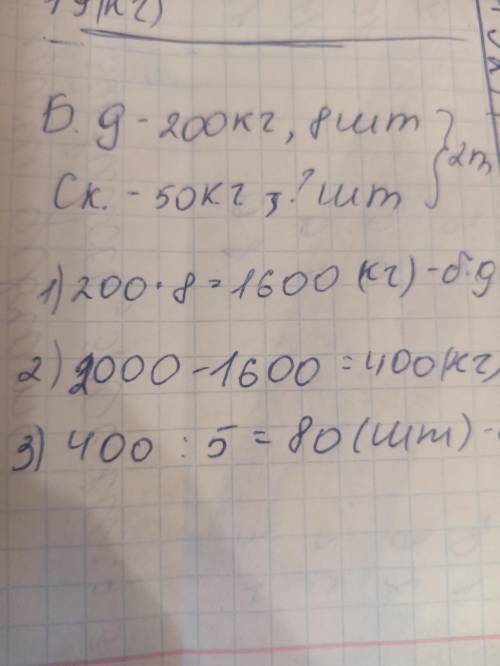 19(кг)
Б. д - 200кг, 8 шт } 2т
Ск. - 50кг, ? шт
1) 200 · 8 = 1600 (кг) - б.д
2) 2000 - 1600 = 400(кг)
3) 400 : 5 = 80 (шт) -